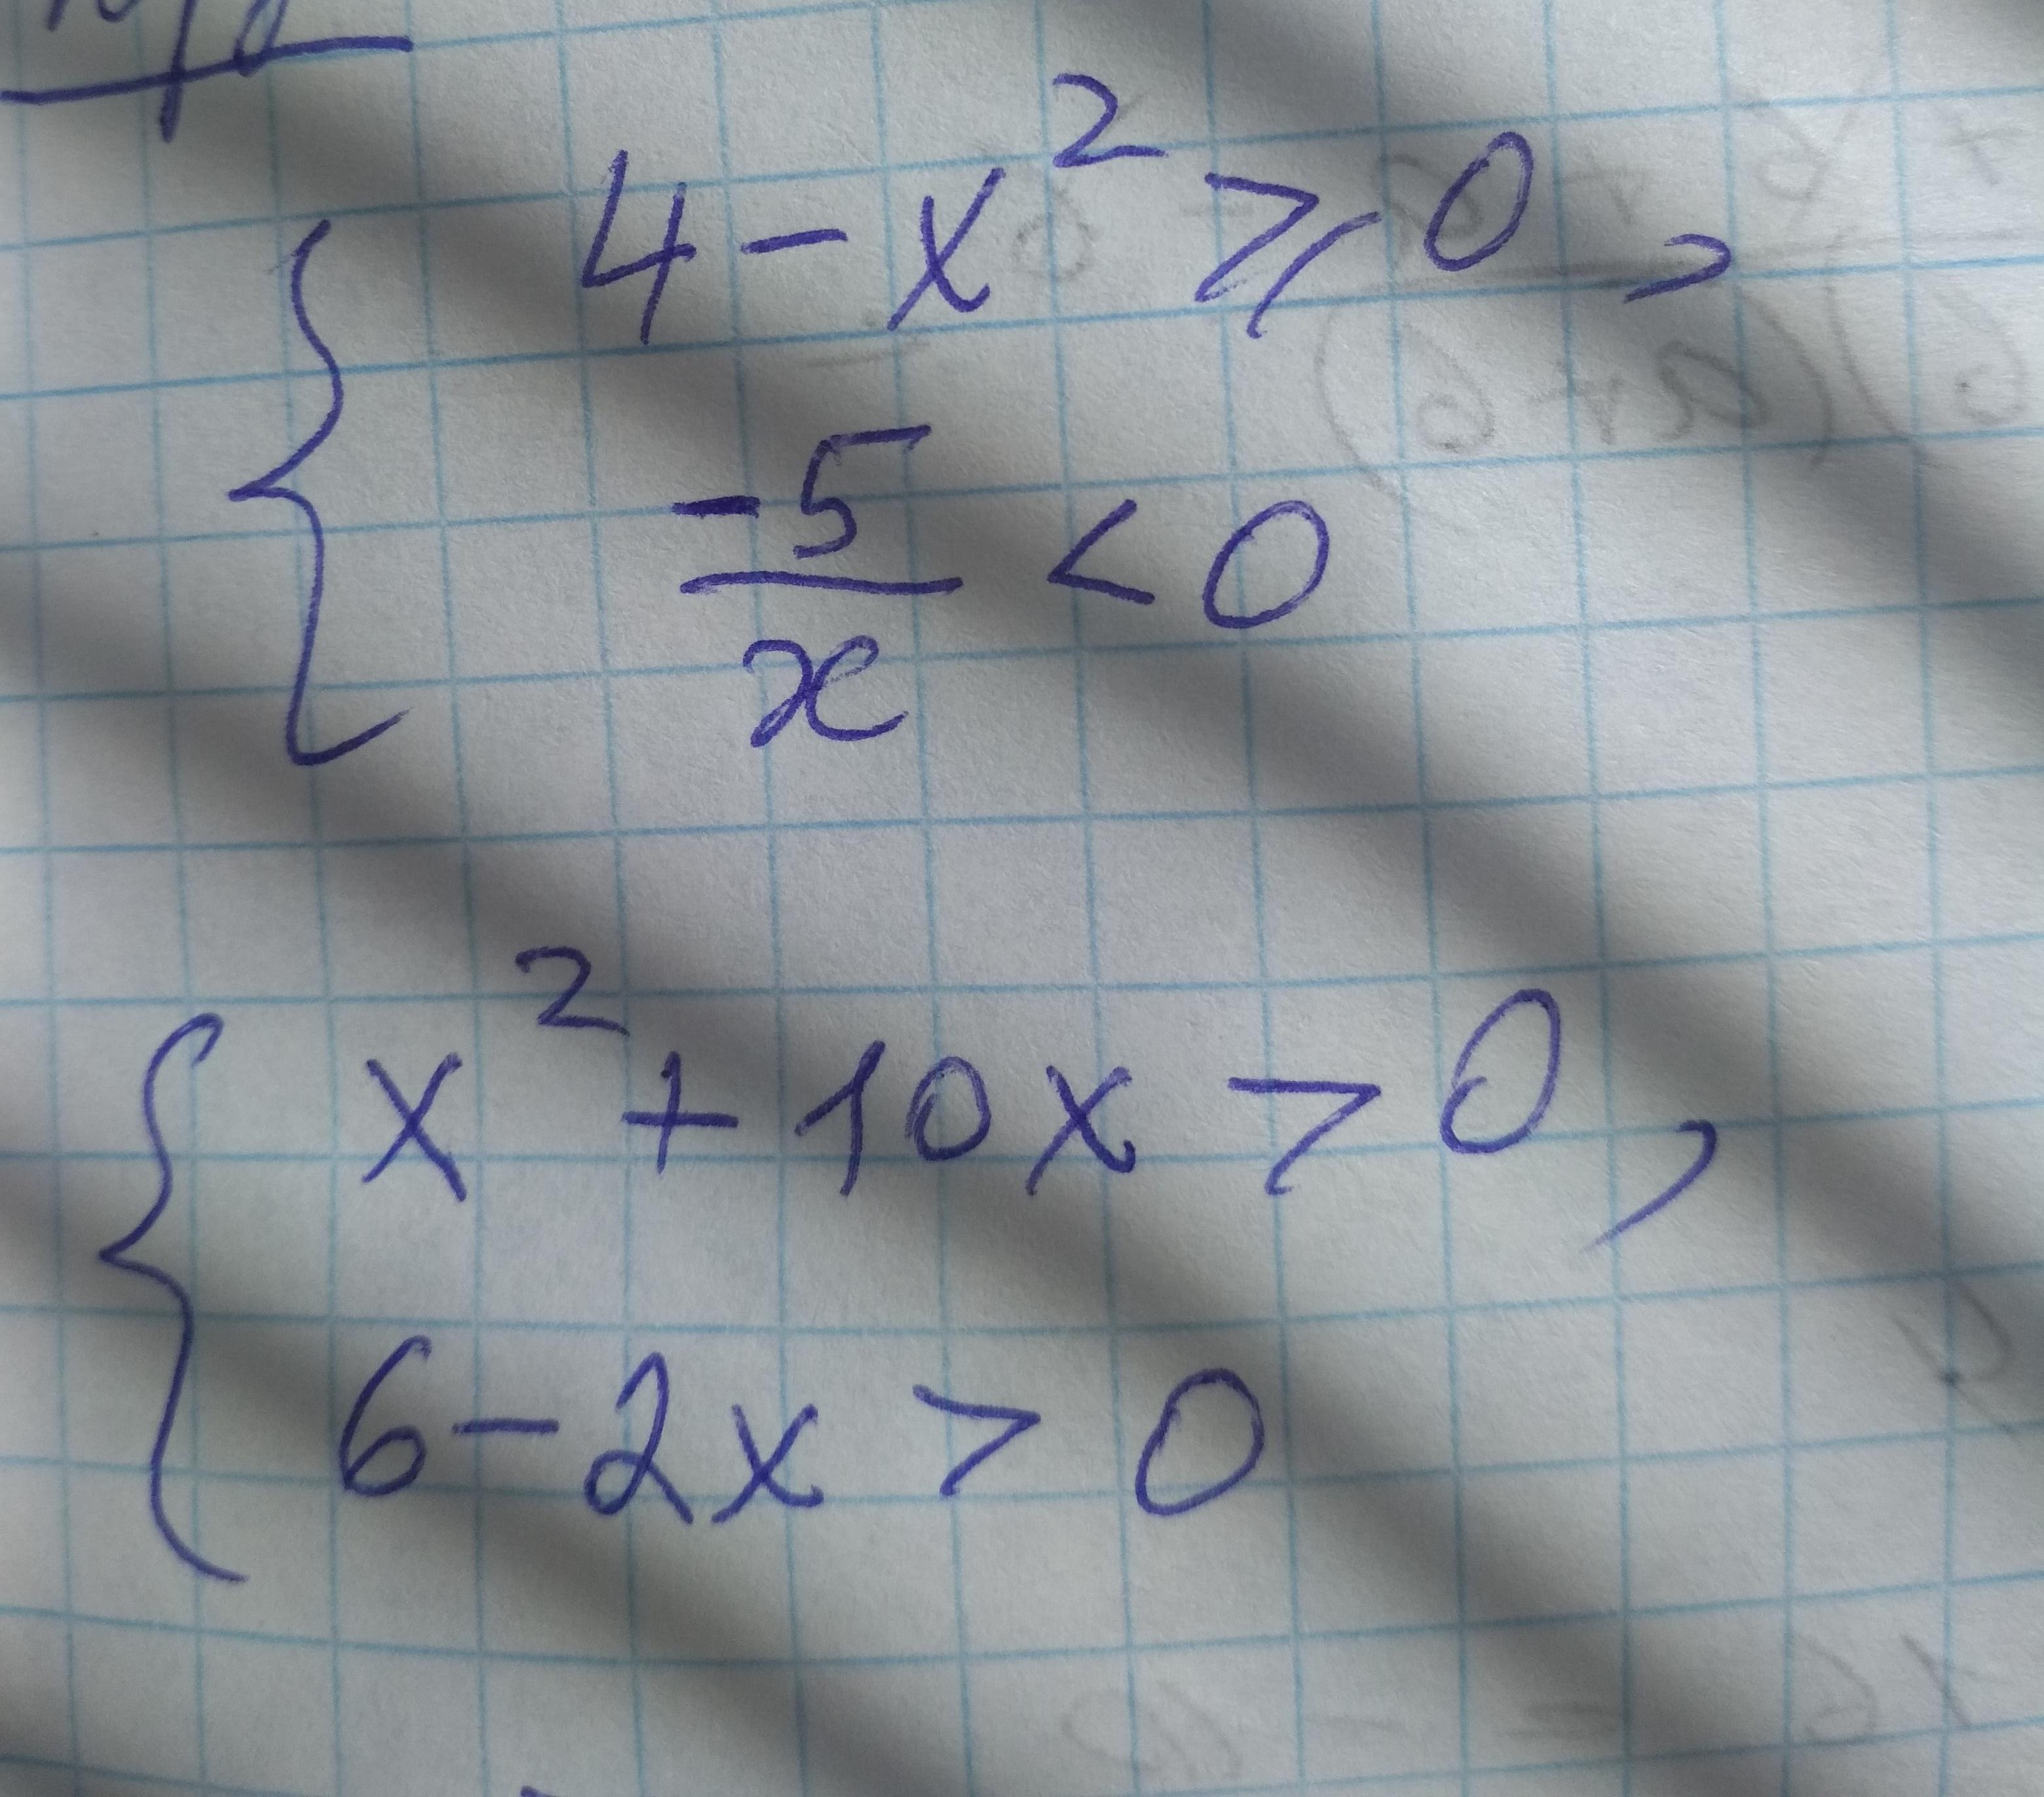 4 - x² ⩾ 0,
-5/x < 0
x² + 10x > 0,
6 - 2x > 0